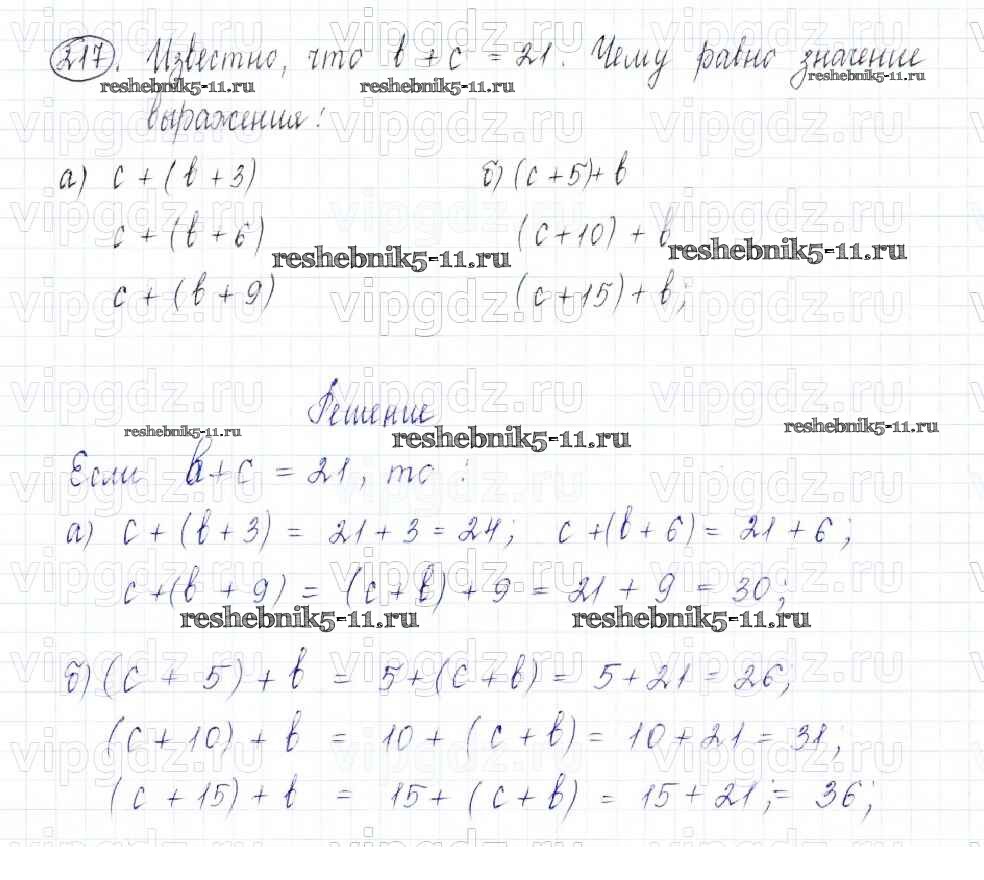 217. Известно, что b + c = 21. Чему равно значение
reshebnik5-11.ru reshebnik5-11.ru reshebnik5-11.ru
выражения:
vipgdz.ru vipgdz.ru vipgdz.ru
а) c + (b + 3) б) (c + 5) + b
c + (b + 6) (c + 10) + b
reshebnik5-11.ru reshebnik5-11.ru
c + (b + 9) (c + 15) + b;
vipgdz.ru vipgdz.ru vipgdz.ru
Решение
reshebnik5-11.ru reshebnik5-11.ru reshebnik5-11.ru
Если b + c = 21, то :
а) c + (b + 3) = 21 + 3 = 24; c + (b + 6) = 21 + 6;
c + (b + 9) = (c + b) + 9 = 21 + 9 = 30;
reshebnik5-11.ru reshebnik5-11.ru
б) (c + 5) + b = 5 + (c + b) = 5 + 21 = 26;
(c + 10) + b = 10 + (c + b) = 10 + 21 = 31;
(c + 15) + b = 15 + (c + b) = 15 + 21 ;= 36;